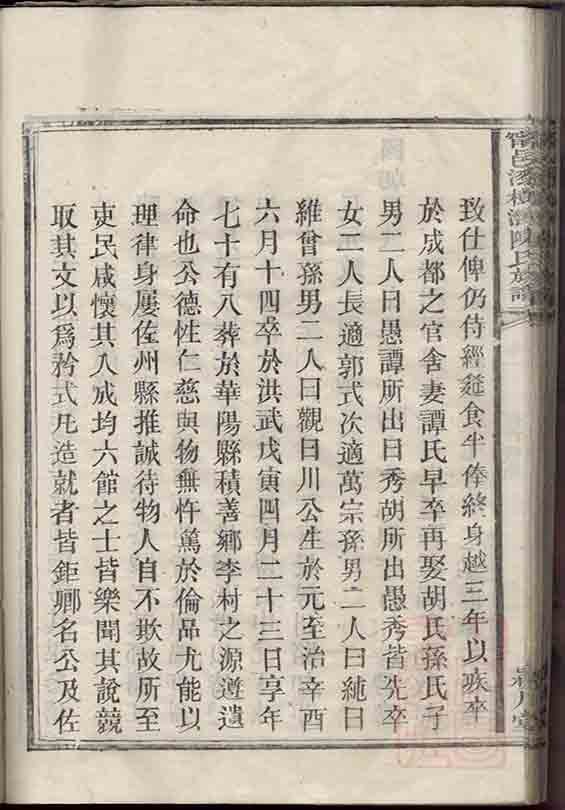 致仕俾仍侍經筵食半俸終身越三年以疾卒
於成都之官舍妻譚氏早卒再娶胡氏孫氏子
男二人曰愚譚所出曰秀胡所出愚秀皆先卒
女二人長適郭式次適萬宗孫男二人曰純曰
維曾孫男二人曰觀曰川公生於元至治辛酉
六月十四卒於洪武戊寅四月二十三日享年
七十有八葬於華陽縣積善鄉李村之源遵遺
命也公德性仁慈與物無忤篤於倫品尤能以
理律身屢佐州縣推誠待物人自不欺故所至
吏民咸懷其入成均六館之士皆樂聞其說競
取其文以爲矜式凡造就者皆鉅卿名公及佐